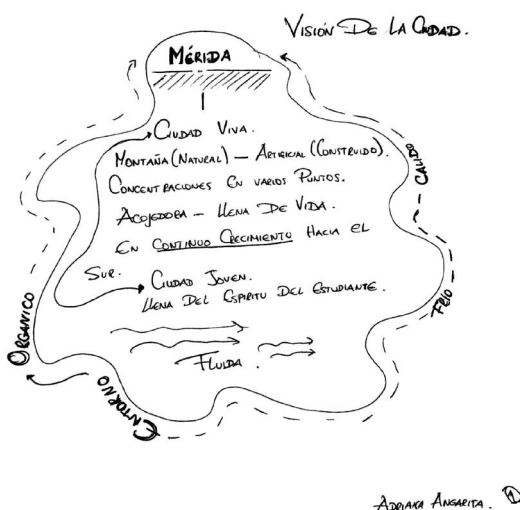 VISIÓN DE LA CIUDAD.
MÉRIDA
CIUDAD VIVA.
MONTAÑA (NATURAL) – ARTIFICIAL (CONSTRUIDO).
CONCENTRACIONES EN VARIOS PUNTOS.
ACOJEDORA – LLENA DE VIDA.
EN CONTINUO CRECIMIENTO HACIA EL
SUR.
CIUDAD JOVEN.
LLENA DEL ESPIRITU DEL ESTUDIANTE.
FLUIDA.
CALIDO
FRIO
ORGANICO
ENTORNO
ADRIANA ANGARITA. 1